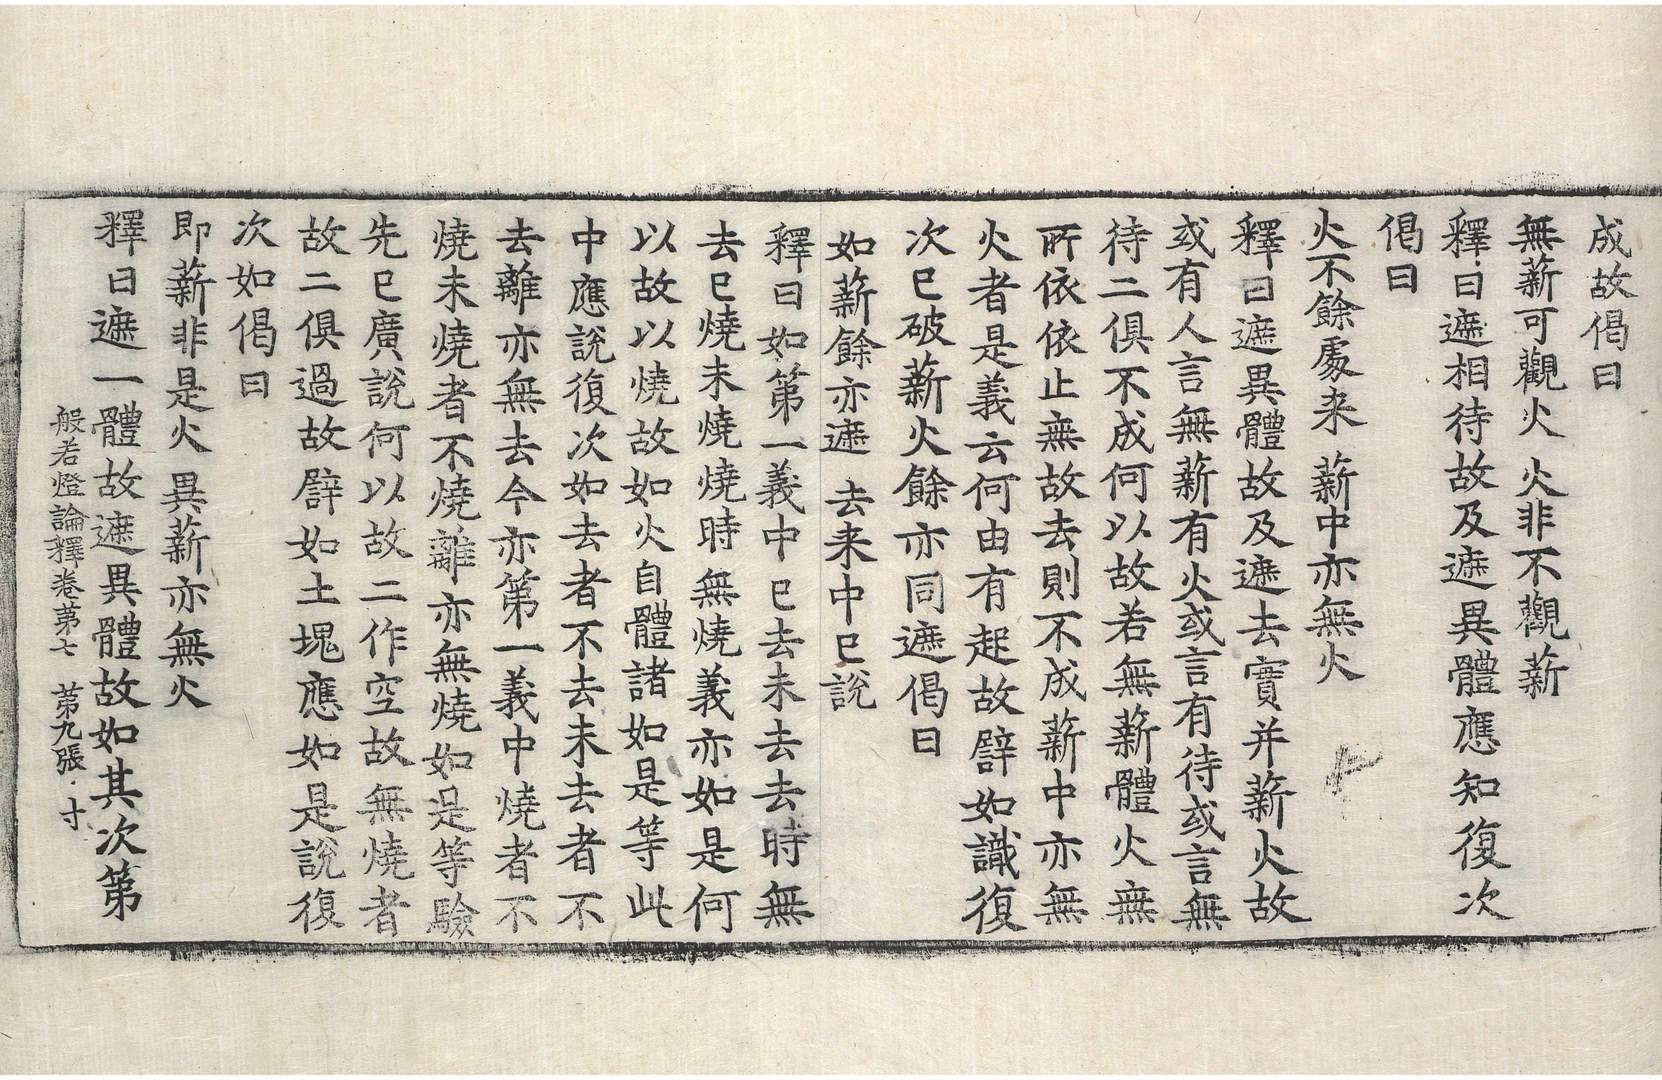 成故偈曰
無薪可觀火　火非不觀薪
釋曰遮相待故及遮異體應知復次
偈曰
火不餘處来　薪中亦無火
釋曰遮異體故及遮去實并薪火故
或有人言無薪有火或言有待或言無
待二俱不成何以故若無薪體火無
所依依止無故去則不成薪中亦無
火者是義云何由有起故譬如識復
次已破薪火餘亦同遮偈曰
如薪餘亦遮　去来中已說
釋曰如第一義中已去未去去時無
去已燒未燒燒時無燒義亦如是何
以故以燒故如火自體諸如是等此
中應說復次如去者不去未去者不
去離亦無去今亦第一義中燒者不
燒未燒者不燒離亦無燒如是等驗
先已廣說何以故二作空故無燒者
故二俱過故譬如土塊應如是說復
次如偈曰
即薪非是火　異薪亦無火
釋曰遮一體故遮異體故如其次第
般若燈論釋卷第七　第九張　寸